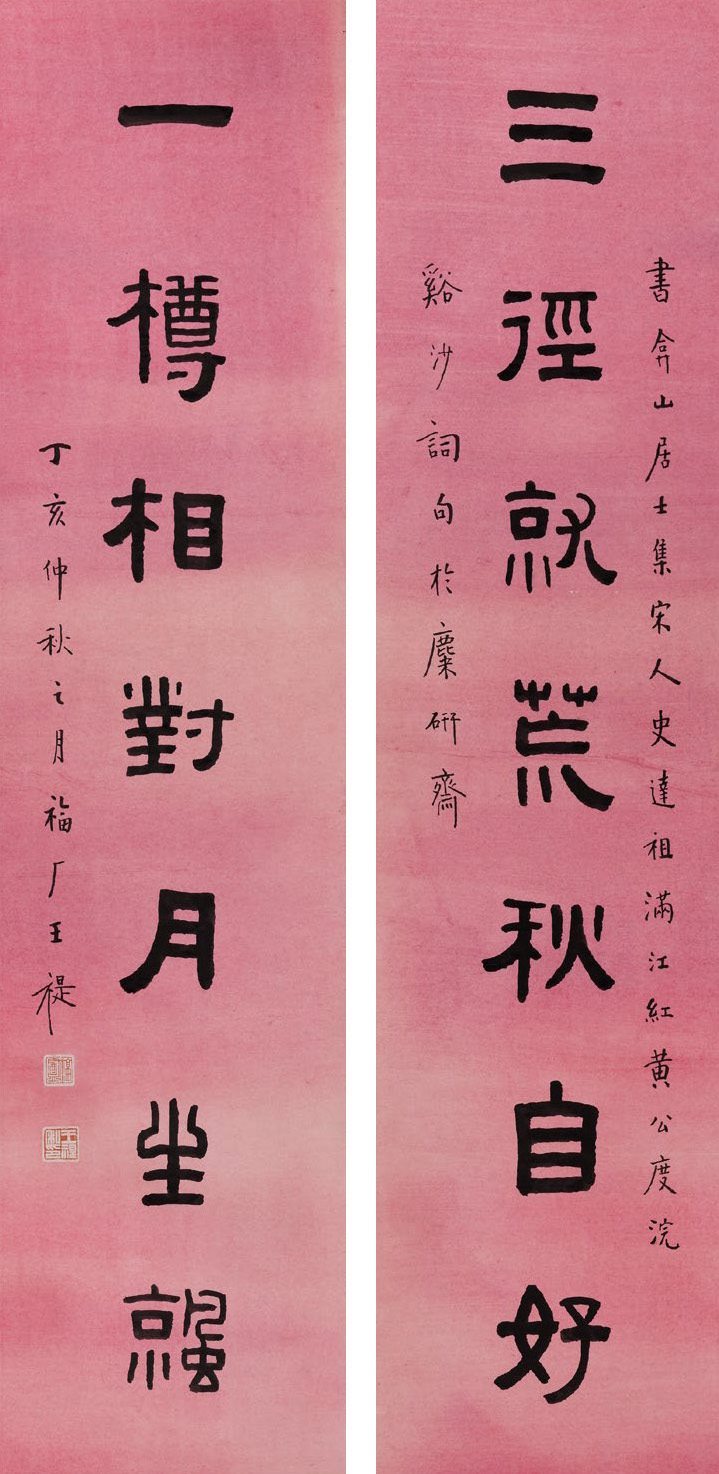 書弇山居士集宋人史達祖滿江紅黃公度浣
三徑就荒秋自好
谿沙詞句於麋研齋
一樽相對月生𩗬
丁亥仲秋之月福厂王禔